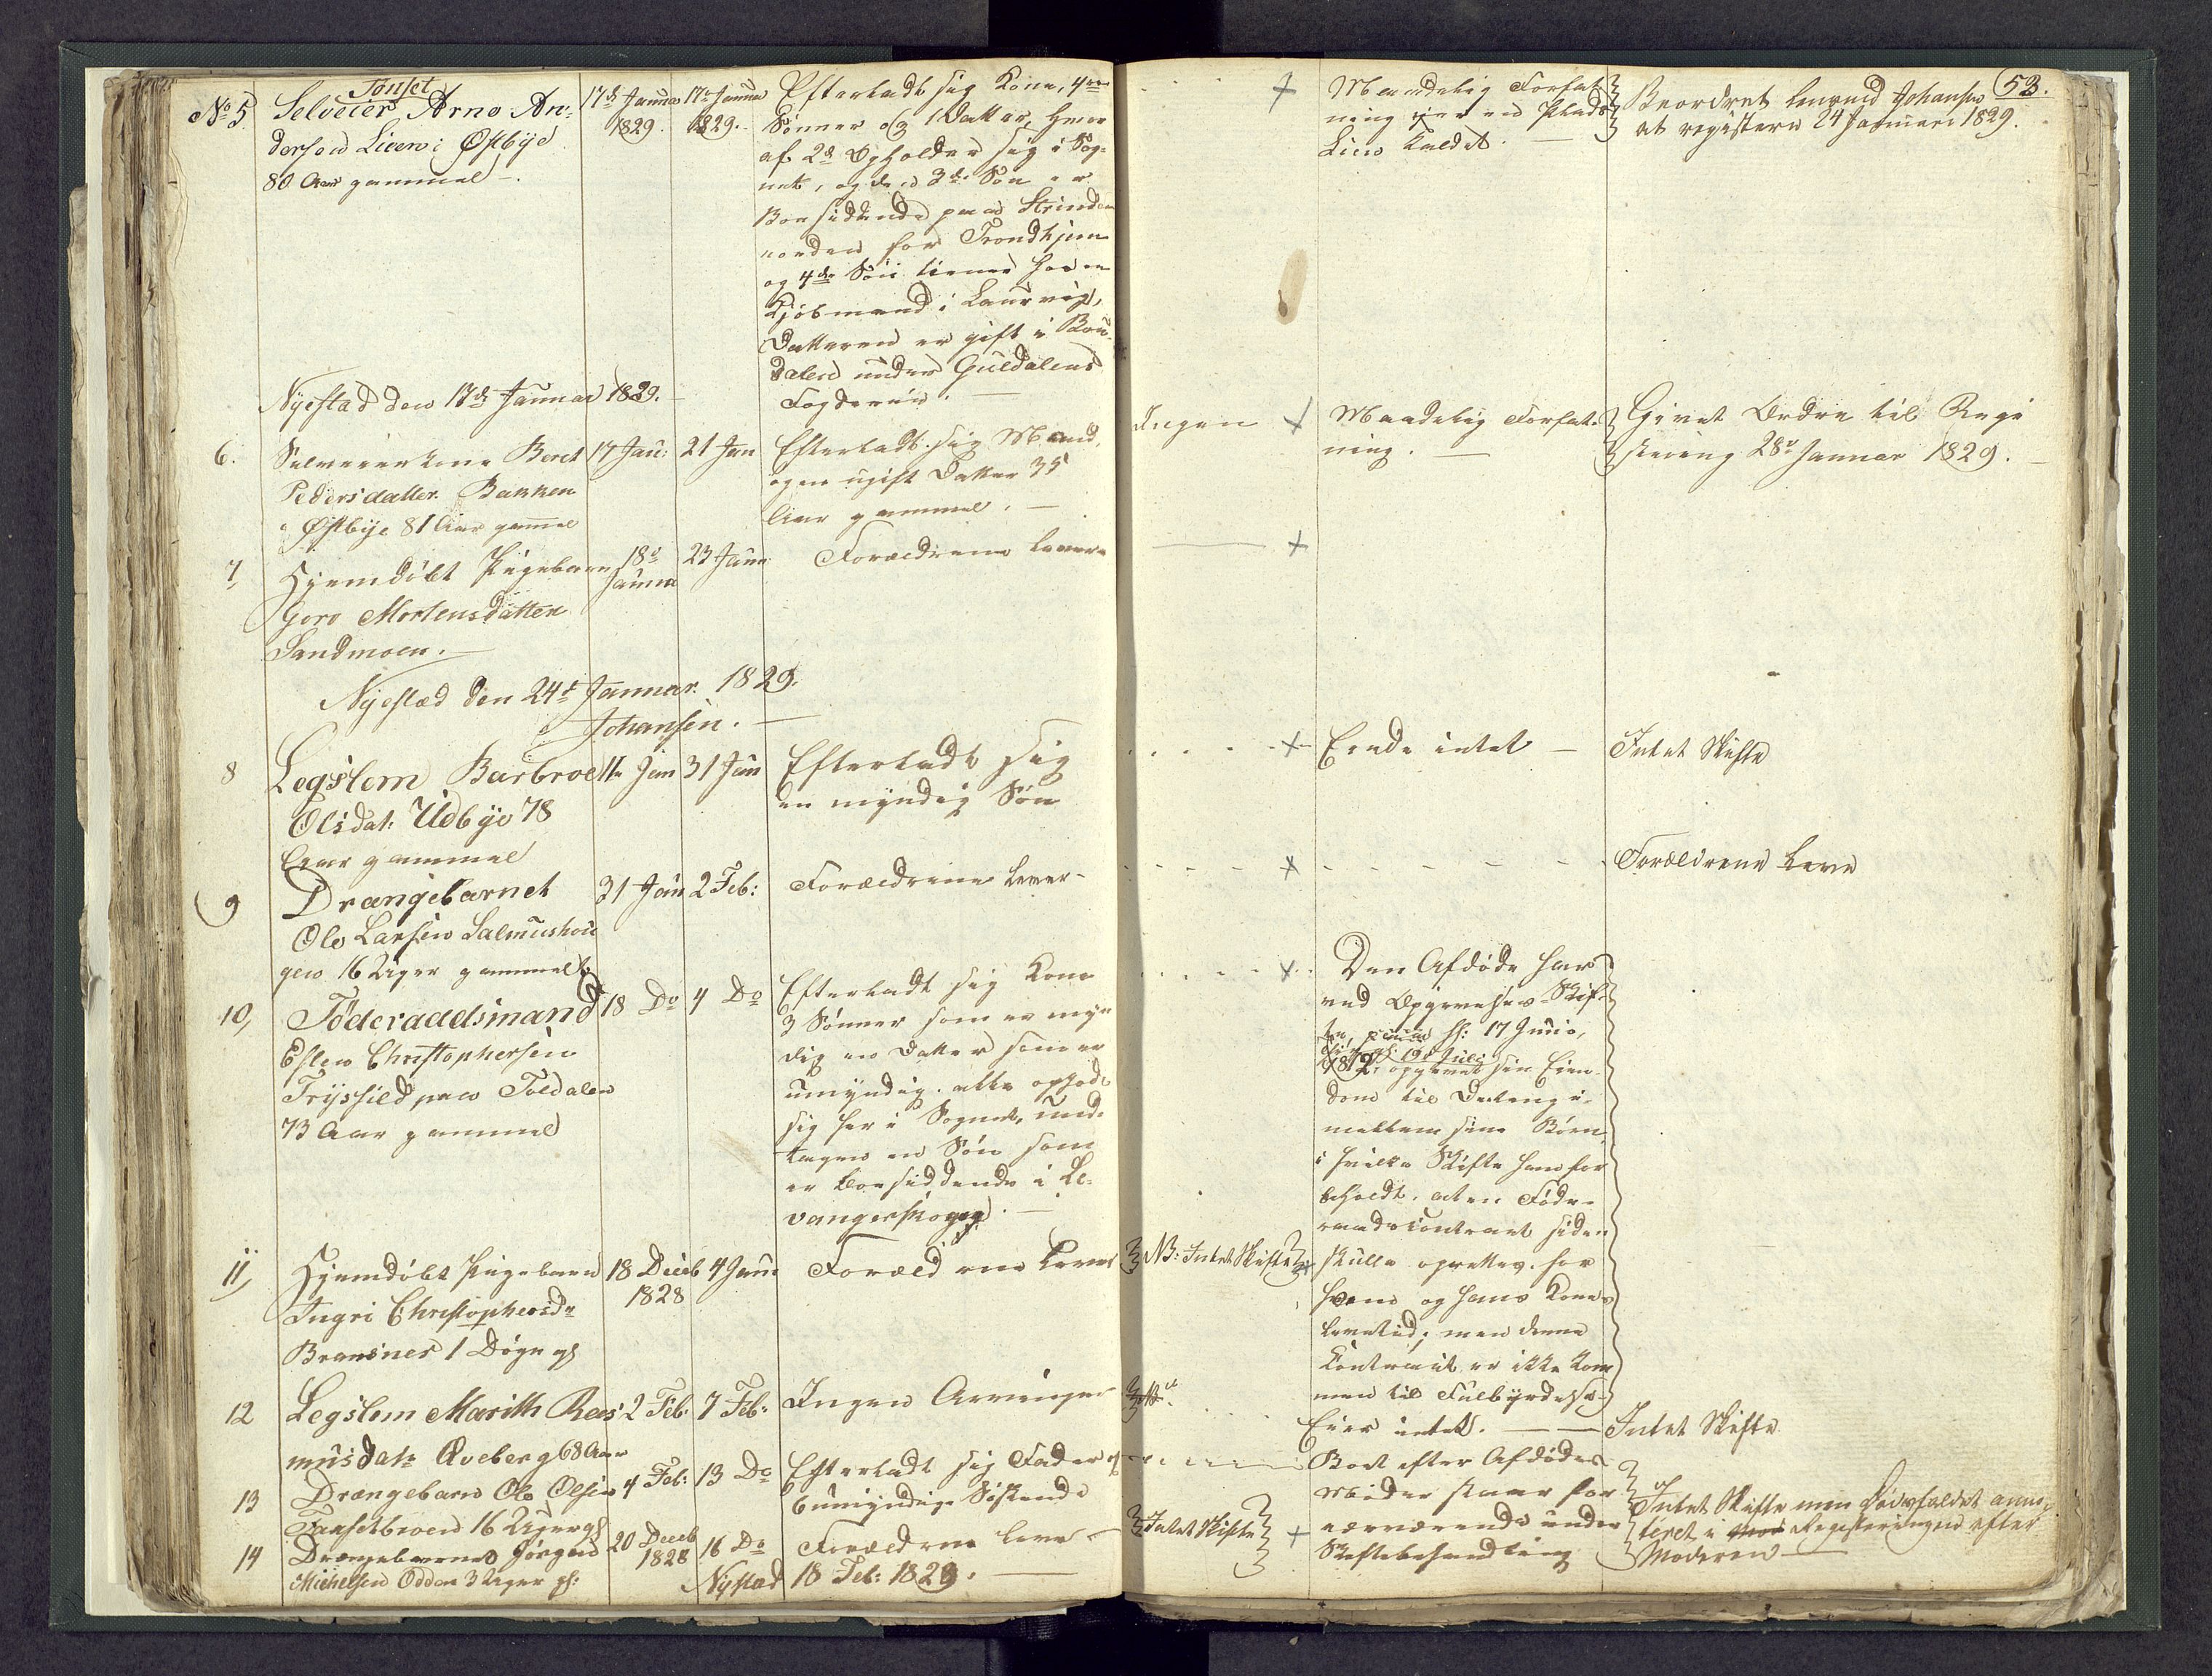 53.
Tønset
No 5. Selveier Arne An-
dersen Lien i Østbye
80 Aar gammel -.
17de Januar 1829.
17de Januar 1829.
Efterladt sig Kone, 4re
Sønner og 1 Datter, hvor
af 2de Opholder sig i Sog-
net, og den 3de Søn er
Boesiddende paa Strinden
norden for Trondhjem
og 4de Søn tiener hos en
Kjøbmand i Laurvig,
Datteren er gift i Bou-
dalen under Guldalens
Fogderie. -
+
Maadelig Forfat-
ning eier en Plads
Lien Kaldet. -
Beordret Lensmd Johansen
at registere 24 Januari 1829.
Nyestad den 17de Januar 1829. -
6. Selveierkone Beret
Pedersdatter Bakken
i Østbye 81 Aar gammel
17 Jan:
21 Jan
Efterladt sig Mand,
og en ugift Datter 35
Aar gammel. -
Ingen +
Maadelig Forfat-
ning. -
Givet Ordre til Regi
stering 28de Januar 1829. -
7, Hjemdøbt Pigebarn
Goro Mortensdatter
Sandmoen. -
18de Januar
23 Janu
Forældrene Lever
+
Nyestad den 24de Januar. 1829.
Johansen. -
8 Legslem Barbroe
Olsdat: Udbye 78
Aar gammel
11te Jan
31 Jan
Efterladt sig
en myndig Søn
+
Eiede intet -
Intet Skifte
9 Drængebarnet
Ole Larsen Salmushou
gen 16 Uger gammelt
31 Jan
2 Feb:
Forældrene Lever -
+
Forældrene Leve
10, Føderaadsmand
Esten Christophersen
Tryssild paa Toldalen
73 Aar gammel
18 Do
4 Do
Efterladt sig Kone
3 Sønner som er myn
dig en Datter som er
umyndig. alle ophold
sig her i Sognet, und-
tagen en Søn som
er Boesiddende i Le-
vangerskogn. -
+
Den Afdøde har
ved Opgivelses-Skif-
te, 17 Junio,
19de Juli
1812 opgivet sin Eien-
dom til Deeling i-
mellem sine Børn,
i hvilke Skifte han for
beholdt, at en Føde-
raadscontract siden
skulle oprettes for
ham og hans Kones
Levetid; men denne
Contract er ikke kom
men til Fulbyrdelse.
11, Hjemdøbt Pigebarn
Ingri Christophersdr
Bransnes 1 Døgn gl
18 Decb 1828
4 Janu
Forældrene Lever
NB: Intet Skifte
12 Legslem Marith Ras
musdatr Aveberg 68 Aar
2 Feb:
7 Feb:
Ingen Arvinger
Eier intet. -
Intet Skifte
13 Drængebarn Ole Olsen
Tansetbroen 16 Uger gl
4 Feb:
13 Do
Efterladt sig Fader og
6 umyndige Søskende
Boet efter Afdødes
Moder staaer for
nærværende under
Skiftebehandling
Intet Skifte men Dødsfaldet anno-
teret i Registeringen efter
Moderen -
14 Drængebarnet Jørgen
Michelsen Odden 3 Uger gl:
20 Decb 1828
16 Do
Forældrene leve -
Intet Skifte +
Nystad 18 Feb: 1829.